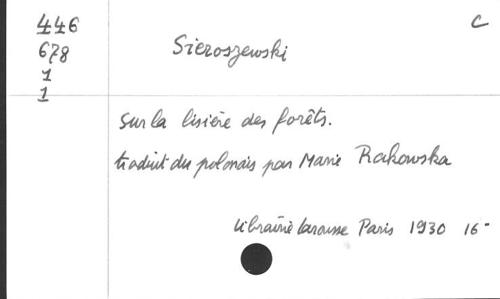 446
678
1
1
C
Sieroszewski
sur la lisière des forêts.
traduit du polonais par Marie Rakowska
librairie Larousse Paris 1930 16-